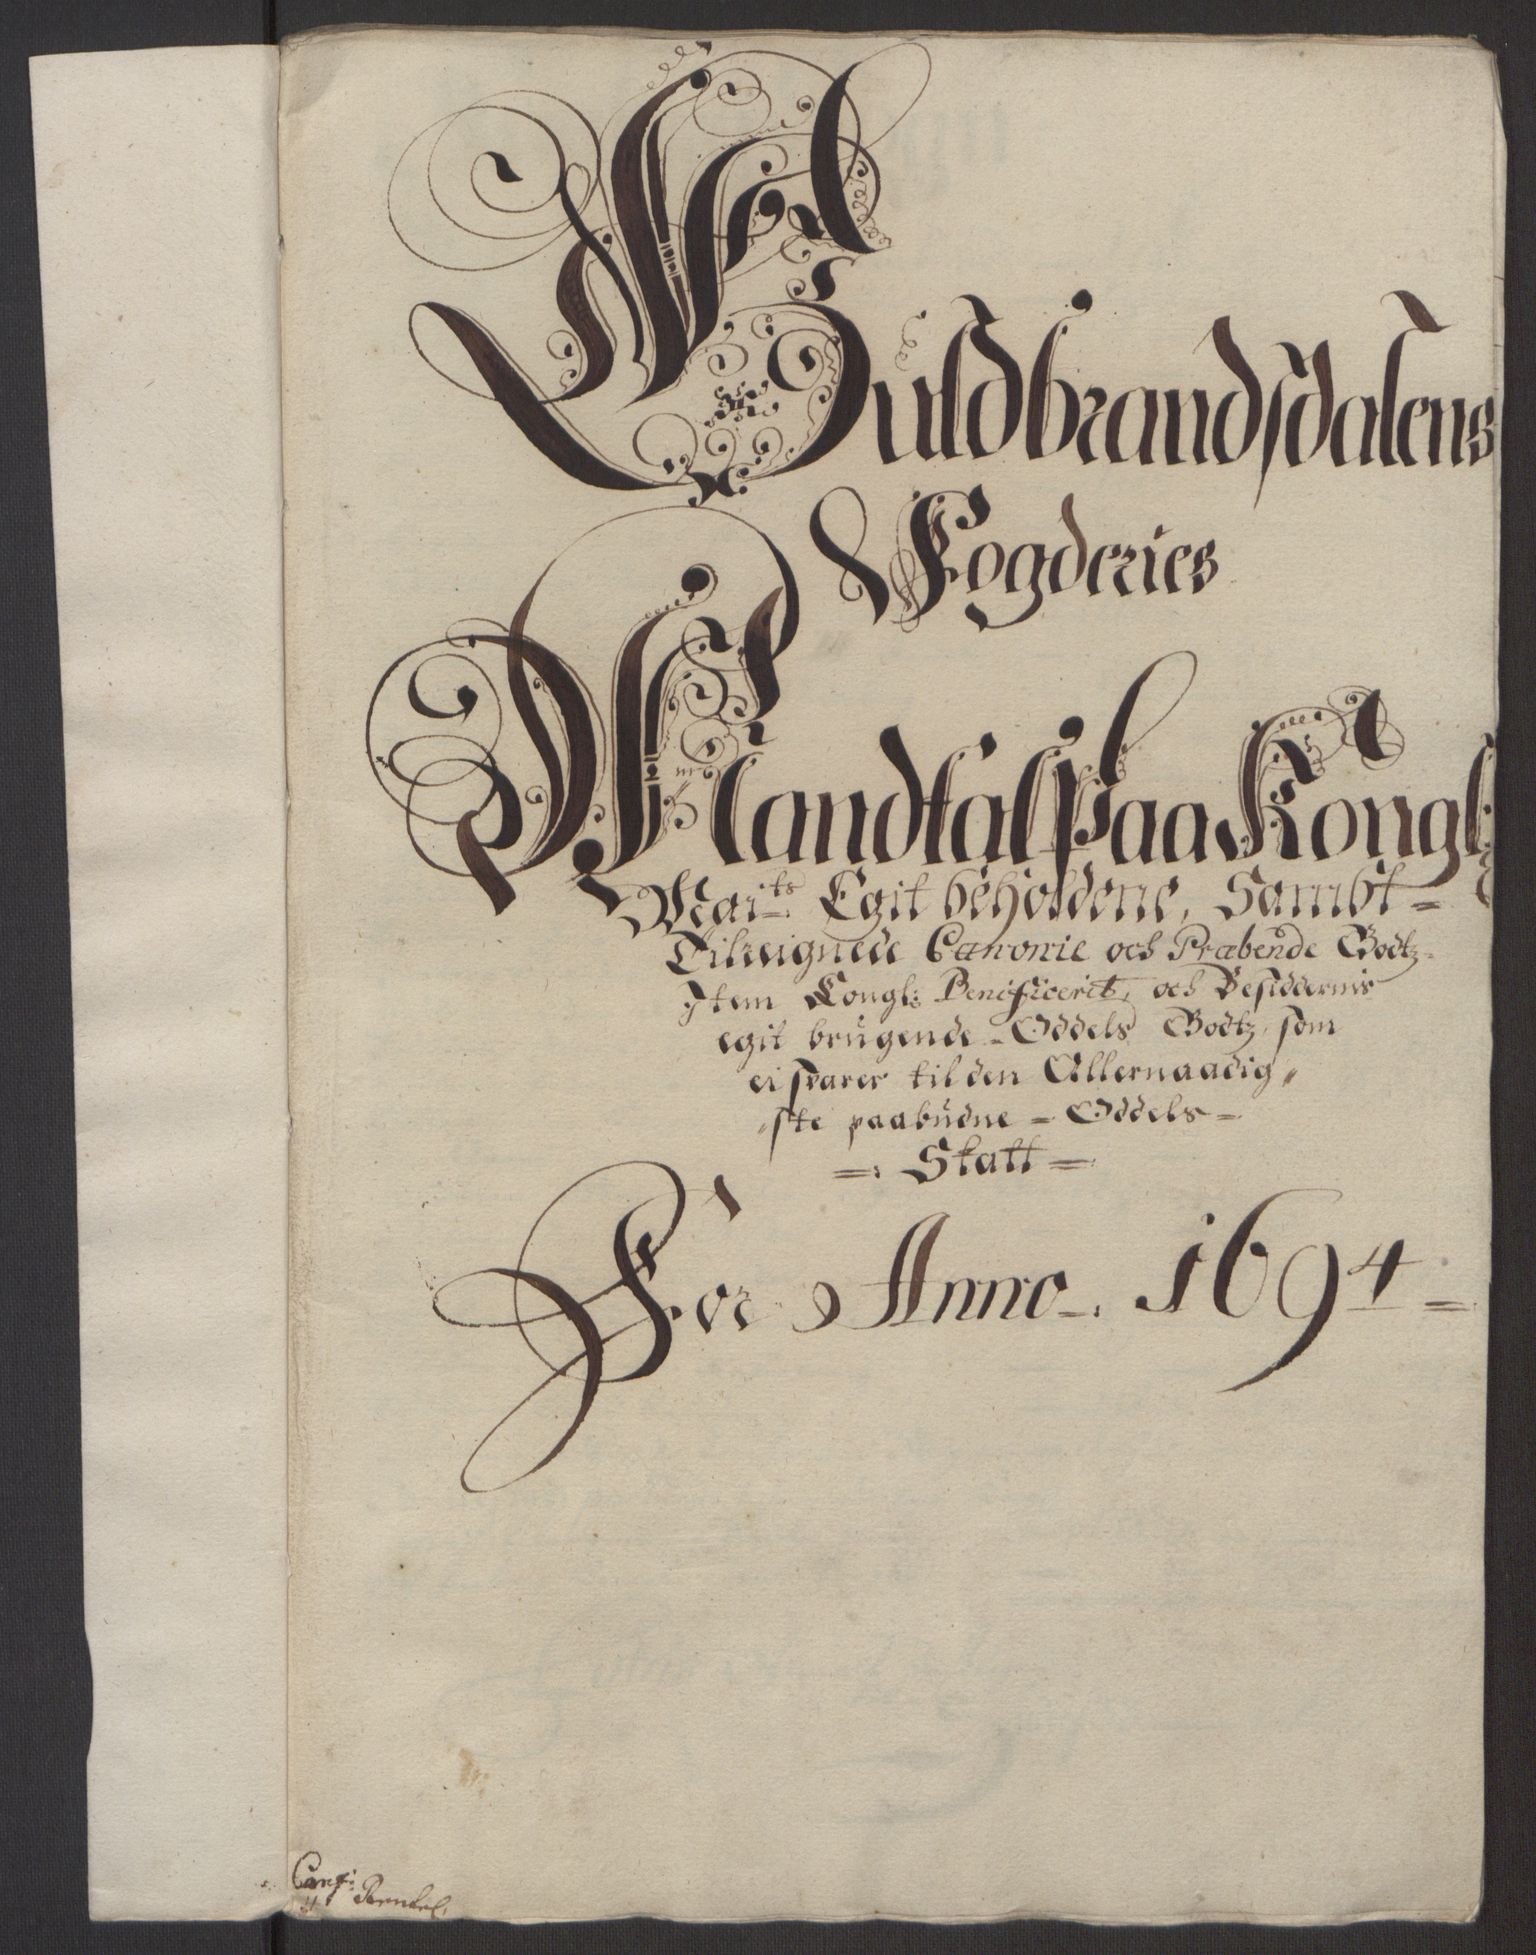 Guldbrandsdalens
Fogderies
Mandtal Paa Kongl:
Mai:ts Egit beholdene, Sambt =
Tilreignede Canonie och Præbende Godtz
Item Kongl: Benificerit, och Besiddernis
egit brugende = Oddels Godtz, som
ei svarer til den Allernaadig„
„ste paabudne = Oddels =
=: Skatt =
For Anno =. 1694 =